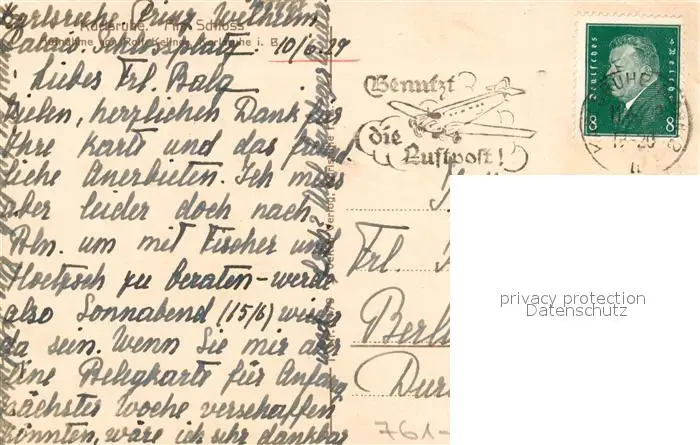 Karlsruhe, Prinz Wilhelm
Karlsruhe. Am Schloss
Palais, Schlossplatz 10/6.29
Aufnahme von Rolf Kellner, Karlsruhe i. B.
Liebes Frl. Balg
Vielen, herzlichen Dank für
Ihre Karte und das freund
liche Anerbieten. Ich muss
aber leider doch nach
Bln. um mit Fischer und
Hoetzsch zu beraten - werde
also Sonnabend (15/6) wieder
da sein. Wenn Sie mir aber
eine Belegkarte für Anfang
nächster Woche verschaffen
könnten, wäre ich sehr dankbar
Benutzt
die
Luftpost!
Deutsches Reich
8 8
Frl.
Berl
Dur
761-
privacy protection
Datenschutz